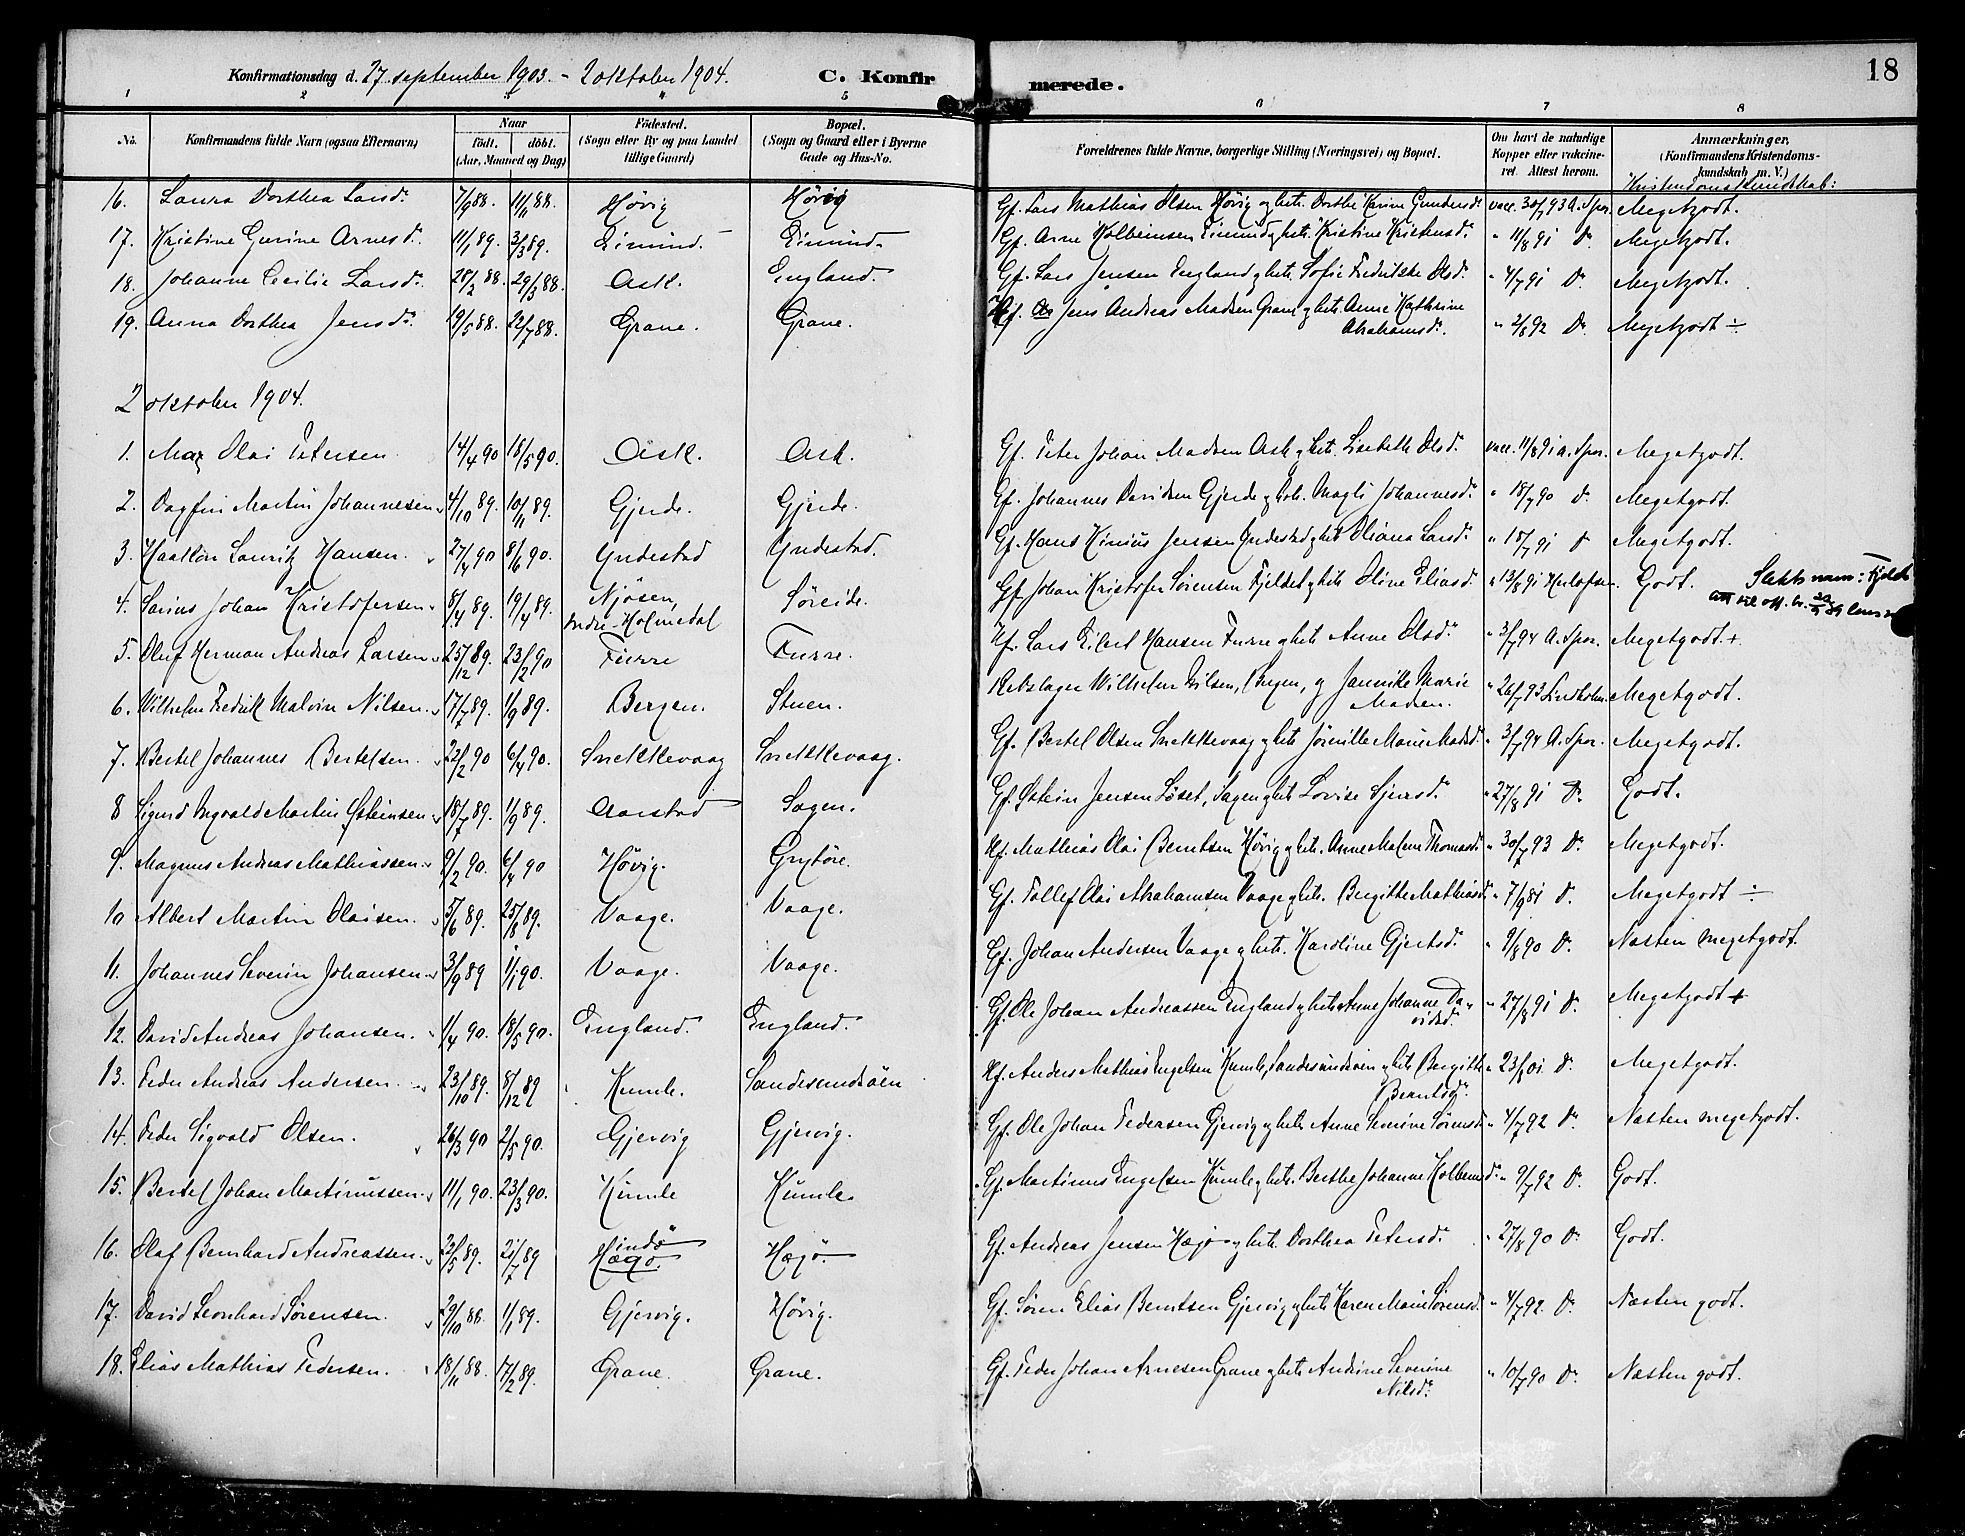 Konfirmationsdag d. 27 september 1903. - 2 oktober 1904. C. Konfirmerede. 18
1 2 3 4 5 6 7 8
No. Konfirmandens fulde Navn (ogsaa Efternavn) Naar född. döbt. (Aar, Maaned og Dag) Födested. (Sogn eller By og paa Landet tillige Gaard) Bopæl. (Sogn og Gaard eller i Byerne Gade og Hus-No. Forældrenes fulde Navne, borgerlige Stilling (Næringsvei) og Bopæl. Om havt de naturlige Kopper eller vaccineret. Attest herom. Anmærkninger, (Konfirmandens Kristendomskundskab m. V.)
Kristendomskundskab:
16. Laura Dorthea Larsdr. 7/9 88. 11/11 88. Hövig Hövig Gf. Lars Mathias Olsen Hövig og htr. Dorthe Karine Gundersdr. vacc. 30/7 93 A. Spor. Megetgodt.
17. Kristine Gurine Arnesdr. 11/1 89. 3/3 89. Eimind. Eimind. Gf. Arne Kolbeinsen Eimind og htr. Kristine Kristensdr. " 11/8 91 Do. Megetgodt.
18. Johanne Cecilie Larsdr. 28/2 88. 29/3 88. Ask. England. Gf. Lars Jensen England og htr. Sofie Fredrikke Olsdr. " 4/7 91 Do. Megetgodt.
19. Anna Dorthea Jensdr. 19/5 88. 22/7 88. Grane. Grane. Hf. Jens Andreas Madsen Grane og htr. Anne Kathrine Abrahamsdr. " 2/8 92 Do. Megetgodt ÷
2 oktober 1904.
1. Max Olai Petersen 14/4 90 18/5 90. Ask. Ask. Gf. Peter Johan Madsen Ask og htr. Lisebeth Olsdr. vacc. 11/8 91 A. Spor. Megetgodt.
2. Dagfin Martin Johannesen 4/10 89. 10/11 89. Gjerde. Gjerde. Gf. Johannes Davidsen Gjerde og htr. Magli Johannesdr. " 18/7 90 Do. Megetgodt.
3. Haakon Lauritz Hansen. 27/4 90 8/6 90. Yndestad Yndestad. Gf. Hans Kinius Jenssen Yndestad og htr. Oliana Larsdr. " 18/7 91 Do Megetgodt.
4. Sarius Johan Kristofersen 8/4 89. 19/4 89. Njösen, Indre-Holmedal Söreide. Gf. Johan Kristofer Sörensen Fjeldet og htr. Oline Eliasd. " 13/8 91 Godt. Slektsnam: Fjeld
5. Oluf Herman Andreas Larsen 25/12 89. 23/2 90 Furre Furre. Hf. Lars Eilert Hansen Furre og htr. Anne Olsdr. " 3/7 94 A. Spor. Megetgodt +
6. Wilhelm Fredrik Malvin Nilsen. 17/7 89. 1/9 89. Bergen. Stuen. Rebslager Wilhelm Nilsen, Bergen, og Jannike Marie Madsen. " 26/7 93 Lindholm. Megetgodt.
7. Bertel Johannes Bertelsen. 22/2 90 6/4 90. Snekkevaag Snekkevaag. Gf. Bertel Olsen Snekkevaag og htr. Jörville Marie Madsd. " 3/7 94 A. Spor. Megetgodt.
8 Sigurd Ingvald Martin Östeinsen 18/7 89. 1/9 89. Aarstad Sagen. Gf. Östein Jensen Löset, Sagen og htr. Lovise Sjursdr. " 27/8 91 Do. Godt.
9. Magnus Andreas Mathiassen 9/2 90. 6/4 90 Hövig. Grytöre. Hf. Mathias Olai Berntsen Hövig og htr. Anne Malene Thomasdr. " 30/7 93 Do. Megetgodt.
10 Albert Martin Olaisen. 5/6 89. 25/8 89. Vaage. Vaage. Gf. Tollef Olai Abrahamsen Vaage og htr. Bergitte Mathiasdr. " 7/9 81 Do. Megetgodt ÷
11. Johannes Severin Johansen 3/9 89 1/1 90. Vaage. Vaage. Gf. Johan Andersen Vaage og htr. Karoline Gjertsdr. " 9/8 90 Do. Næsten megetgodt.
12. David Andreas Johansen. 1/4 90. 18/5 90. England. England. Gf. Ole Johan Andreassen England og htr. Anne Johanne Davidsd. " 27/8 91 Do. Megetgodt +
13. Peder Andreas Andersen. 23/10 89. 8/12 89 Kumle. Sandesundsöen Hf. Anders Mathias Engelsen Kumle, Sandesundsöen og htr. Bergitte Berntsdr. " 23/8 01 Do. Megetgodt.
14. Peder Sigvald Olsen. 26/3 90 2/5 90. Gjervig Gjervig. Gf. Ole Johan Pedersen Gjervig og htr. Anne Severine Sörensdr. " 4/7 92 Do. Næsten megetgodt.
15. Bertel Johan Martinussen 11/1 90. 23/3 90. Kumle Kumle Gf. Martinus Engelsen Kumle og htr. Berthe Johanne Kolbeinsdr. " 9/7 92 Do. Godt.
16. Olaf Bernhard Andreassen. 22/5 89. 21/7 89 Hindö Hægö. Hægö. Gf. Andreas Jensen Hægö og htr. Dorthea Petersdr. " 27/8 90 Do. Godt.
17. David Leonhard Sörensen. 29/10 88. 1/1 89. Gjervig. Hövig. Gf. Sören Elias Berntsen Gjervig og htr. Karen Marie Sörensd. " 4/7 92. Do. Næsten godt.
18. Elias Mathias Pedersen. 18/11 88. 17/2 89. Grane. Grane. Gf. Peder Johan Arnesen Grane og htr. Andrine Severine Nilsdr. " 10/7 90 Do. Næsten godt.